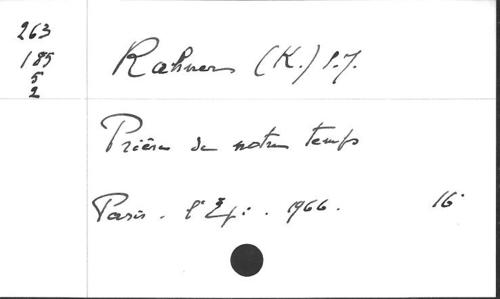 263
185
5
2
Rahner (K.) s.j.
Prières de notre temps
Paris. l'Epi. 1966. 16°